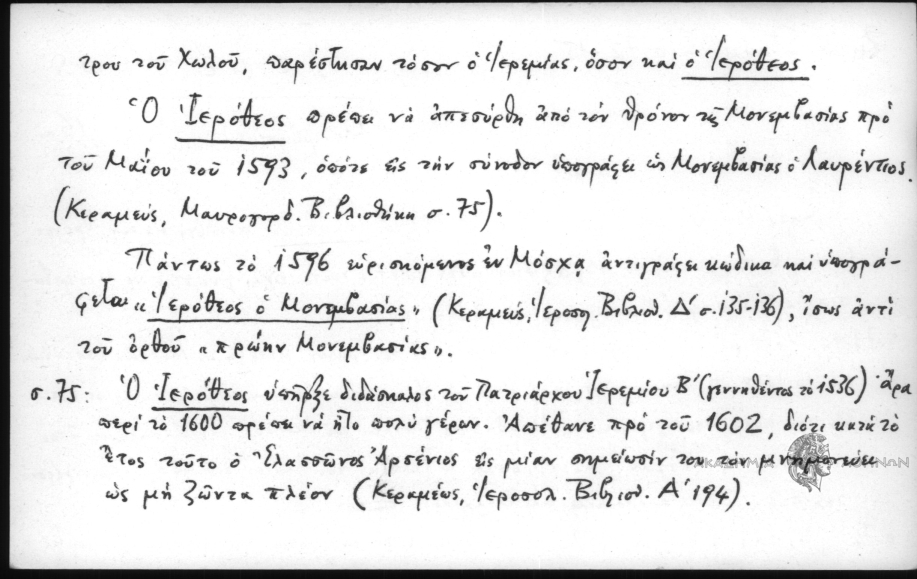 τρου τοῦ Χωλοῦ, παρέστησαν τόσον ὁ Ἱερεμίας, ὅσον καὶ ὁ Ἱερόθεος.
Ὁ Ἱερόθεος πρέπει νὰ ἀπεσύρθη ἀπὸ τὸν θρόνον τῆς Μονεμβασίας πρὸ
τοῦ Μαΐου τοῦ 1593, ὁπότε εἰς τὴν σύνοδον ὑπογράφει ὡς Μονεμβασίας ὁ Λαυρέντιος.
(Κεραμεύς, Μαυρογορδ. Βιβλιοθήκη σ. 75).
Πάντως τὸ 1596 εὑρισκόμενος ἐν Μόσχᾳ ἀντιγράφει κώδικα καὶ ὑπογρά-
φεται «Ἱερόθεος ὁ Μονεμβασίας» (Κεραμεύς, Ἱεροσ. Βιβλιοθ. Δ' σ. 135-136), ἴσως ἀντὶ
τοῦ ὀρθοῦ «πρώην Μονεμβασίας».
σ. 75: Ὁ Ἱερόθεος ὑπῆρξε διδάσκαλος τοῦ Πατριάρχου Ἱερεμίου Β' (γεννηθέντος τὸ 1536) ἄρα
περὶ τὸ 1600 πρέπει νὰ ἦτο πολὺ γέρων. Ἀπέθανε πρὸ τοῦ 1602, διότι κατὰ τὸ
ἔτος τοῦτο ὁ Ἐλασσῶνος Ἀρσένιος εἰς μίαν σημείωσίν του τὸν μνημονεύει
ὡς μὴ ζῶντα πλέον (Κεραμέως, Ἱεροσολ. Βιβλιοθ. Α' 194).
ΑΚΑΔΗΜΙΑ ΑΘΗΝΩΝ